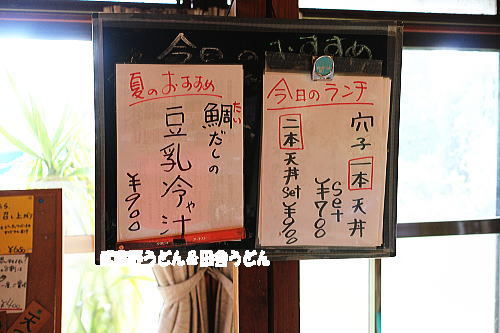 今日のおすすめ
夏のおすすめ
鯛だしの
たい
豆乳冷や汁
¥900
今日のランチ
穴子一本天丼
set
¥700
二本天丼set
うどん&田舎うどん